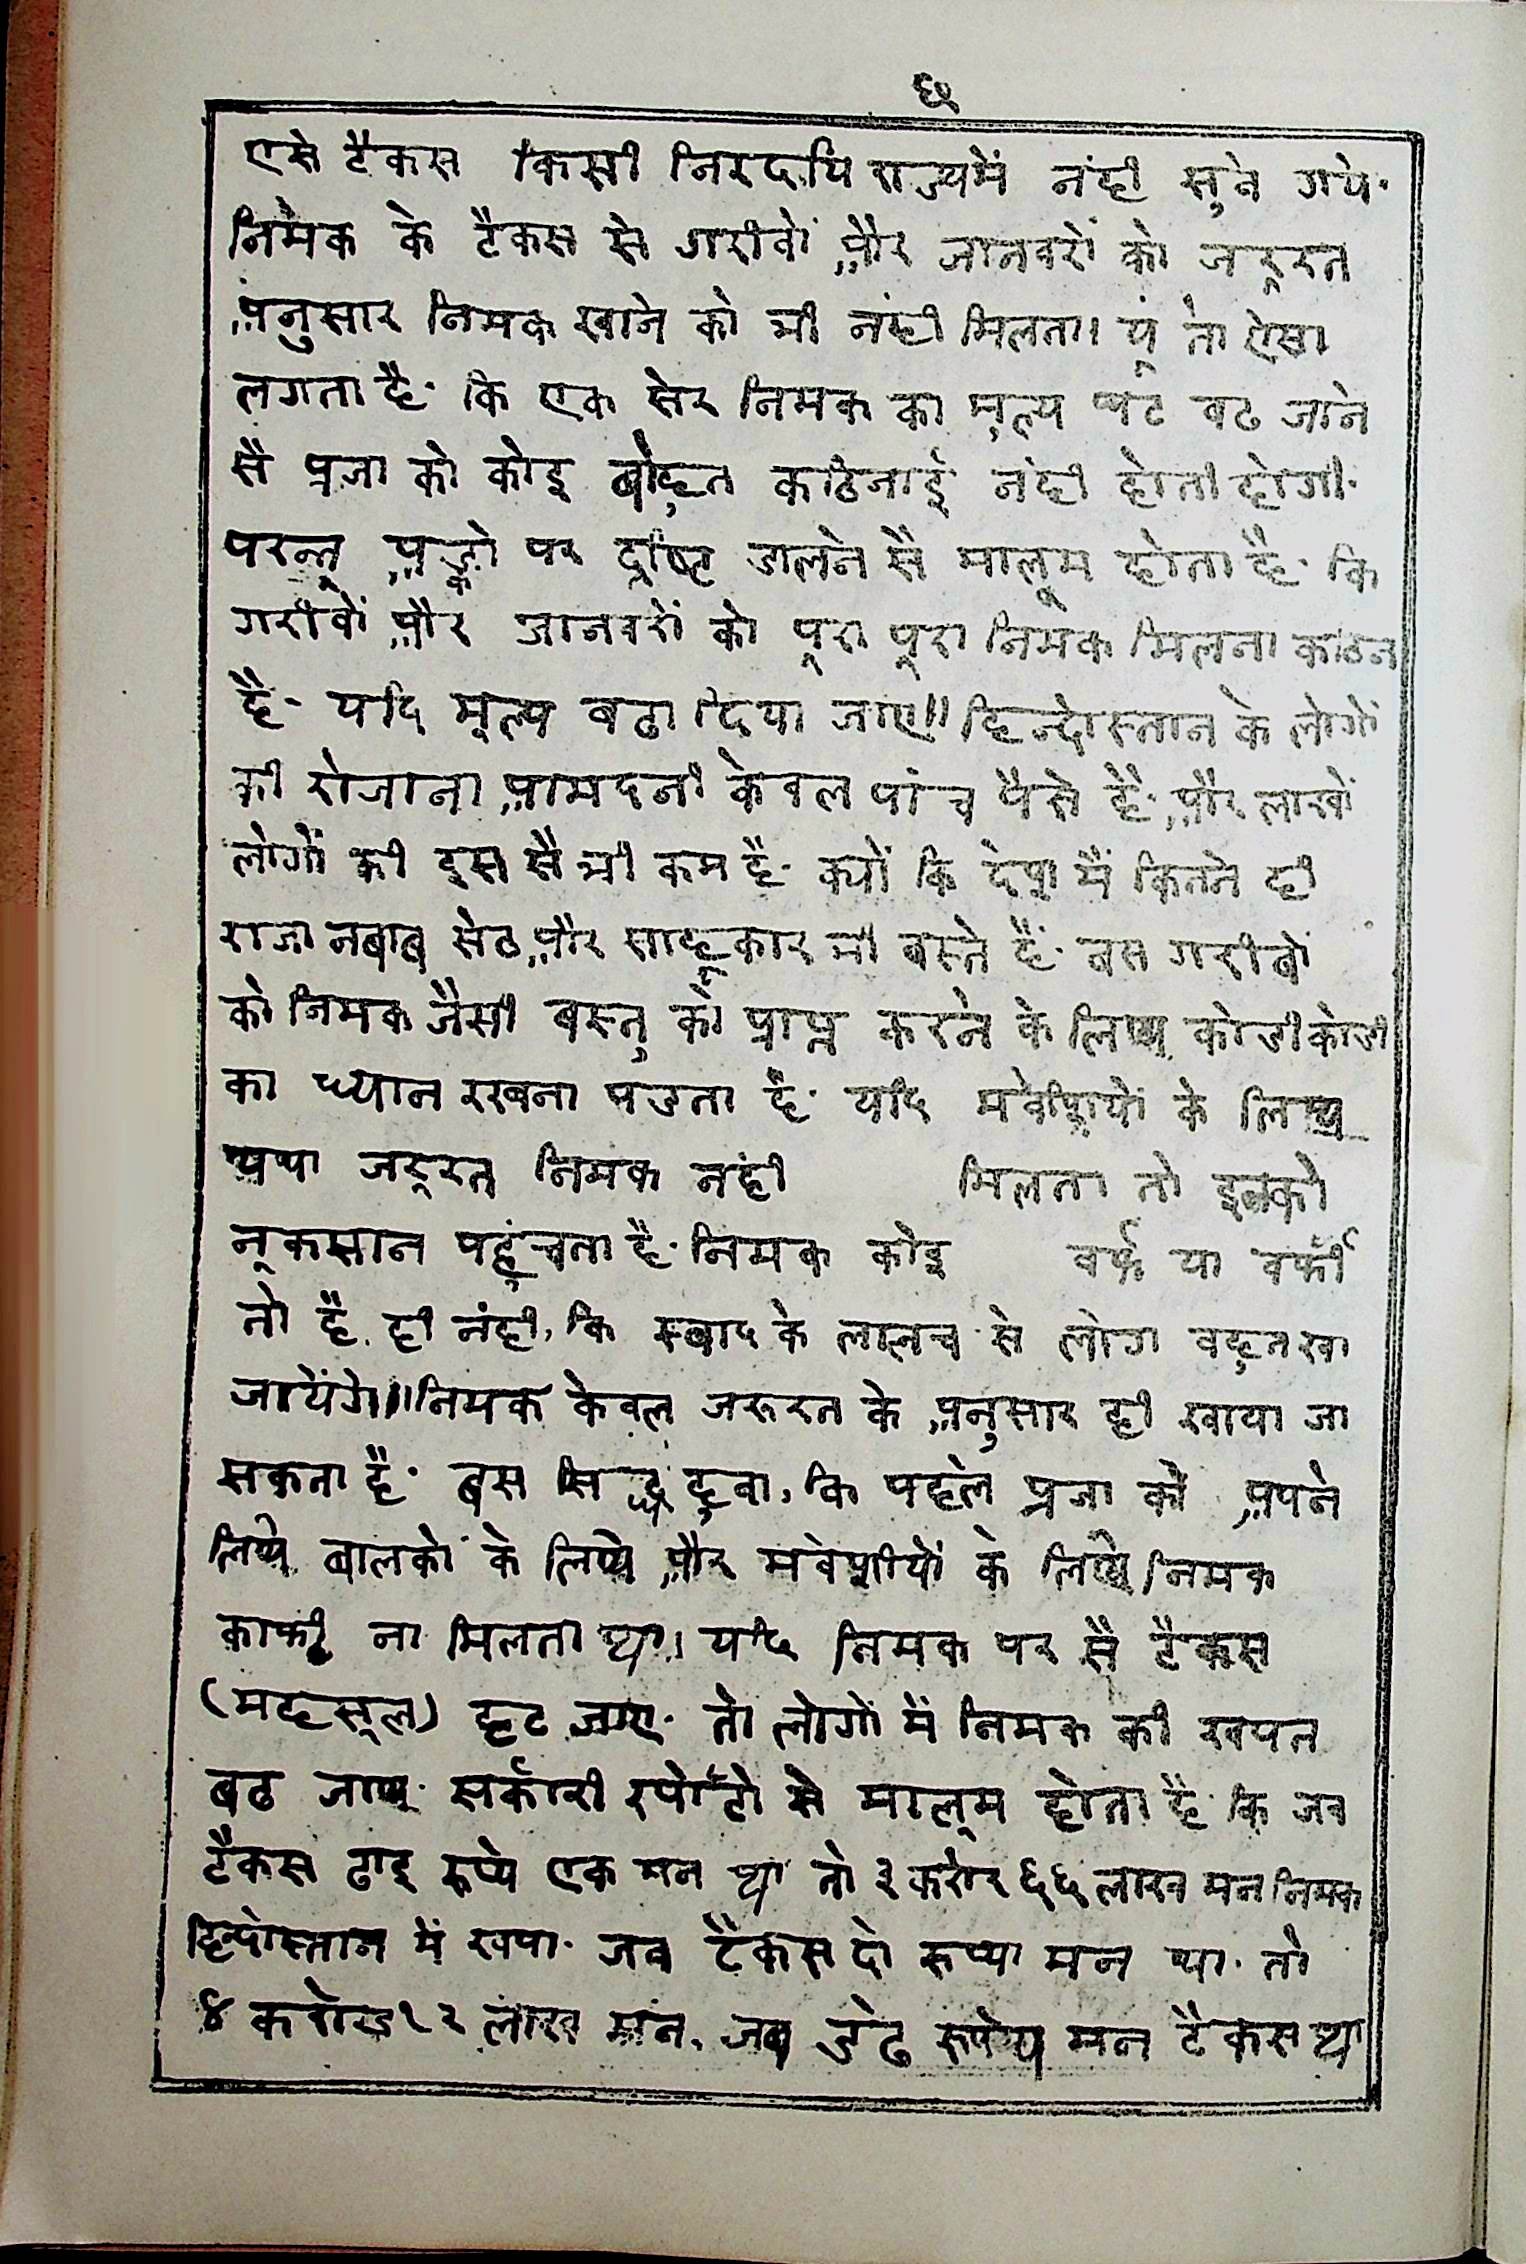 ६
एसे टैकस किसी निरदयि राज्यमें नंही सुने गये.
निमक के टैकस से गरीवों और जानवरों को जरूरत
अनुसार निमक खाने को भी नंही मिलता। यूं तो ऐसा
लगता है. कि एक सेर निमक का मूल्य घट बढ जाने
सै प्रजा को कोइ बोहुत कठिनाई नंही होती होगी.
परन्तू अङ्को पर द्रष्टि डालने सै मालूम होता है. कि
गरीवों और जानवरों को पूरा पूरा निमक मिलना कठिन
है. यदि मूल्य बढा दिया जाए॥ हिन्दोस्तान के लोगों
की रोजाना आमदनी केवल पांच पैसे है. और लाखों
लोगों की इस सै भी कम है. क्यों कि देश में कितने ही
राजा नबाब सेठ और साहूकार भी बस्ते हैं. बस गरीबों
को निमक जैसी बस्तु को प्राप्त करने के लिए कोडी कोडी
का ध्यान रखना पडता है. यदि मवेशियों के लिए
यथा जरूरत निमक नंही मिलता तो इनको
नूकसान पहुंचता है. निमक कोइ बर्फ या बर्फी
तो है. ही नंही, कि स्वाद के लालच से लोग बहुत खा
जायेंगे॥ निमक केवल जरूरत के अनुसार ही खाया जा
सकता है. बस सिद्ध हुवा, कि पहले प्रजा को अपने
लिये बालकों के लिये और मवेशीयों के लिये निमक
काफी ना मिलता था। यदि निमक पर सै टैकस
(महसूल) हट जाए. तो लोगों में निमक की खपत
बढ जाए. सर्कारी रपोर्टो से मालूम होता है. कि जब
टैकस ढाइ रुप्ये एक मन था तो ३ करोर ६६ लाख मन निमक
हिन्दोस्तान में खपा. जब टैकस दो रुप्या मन था. तो
४ करोड १२ लाख मन. जब डेढ रुपये मन टैकस था